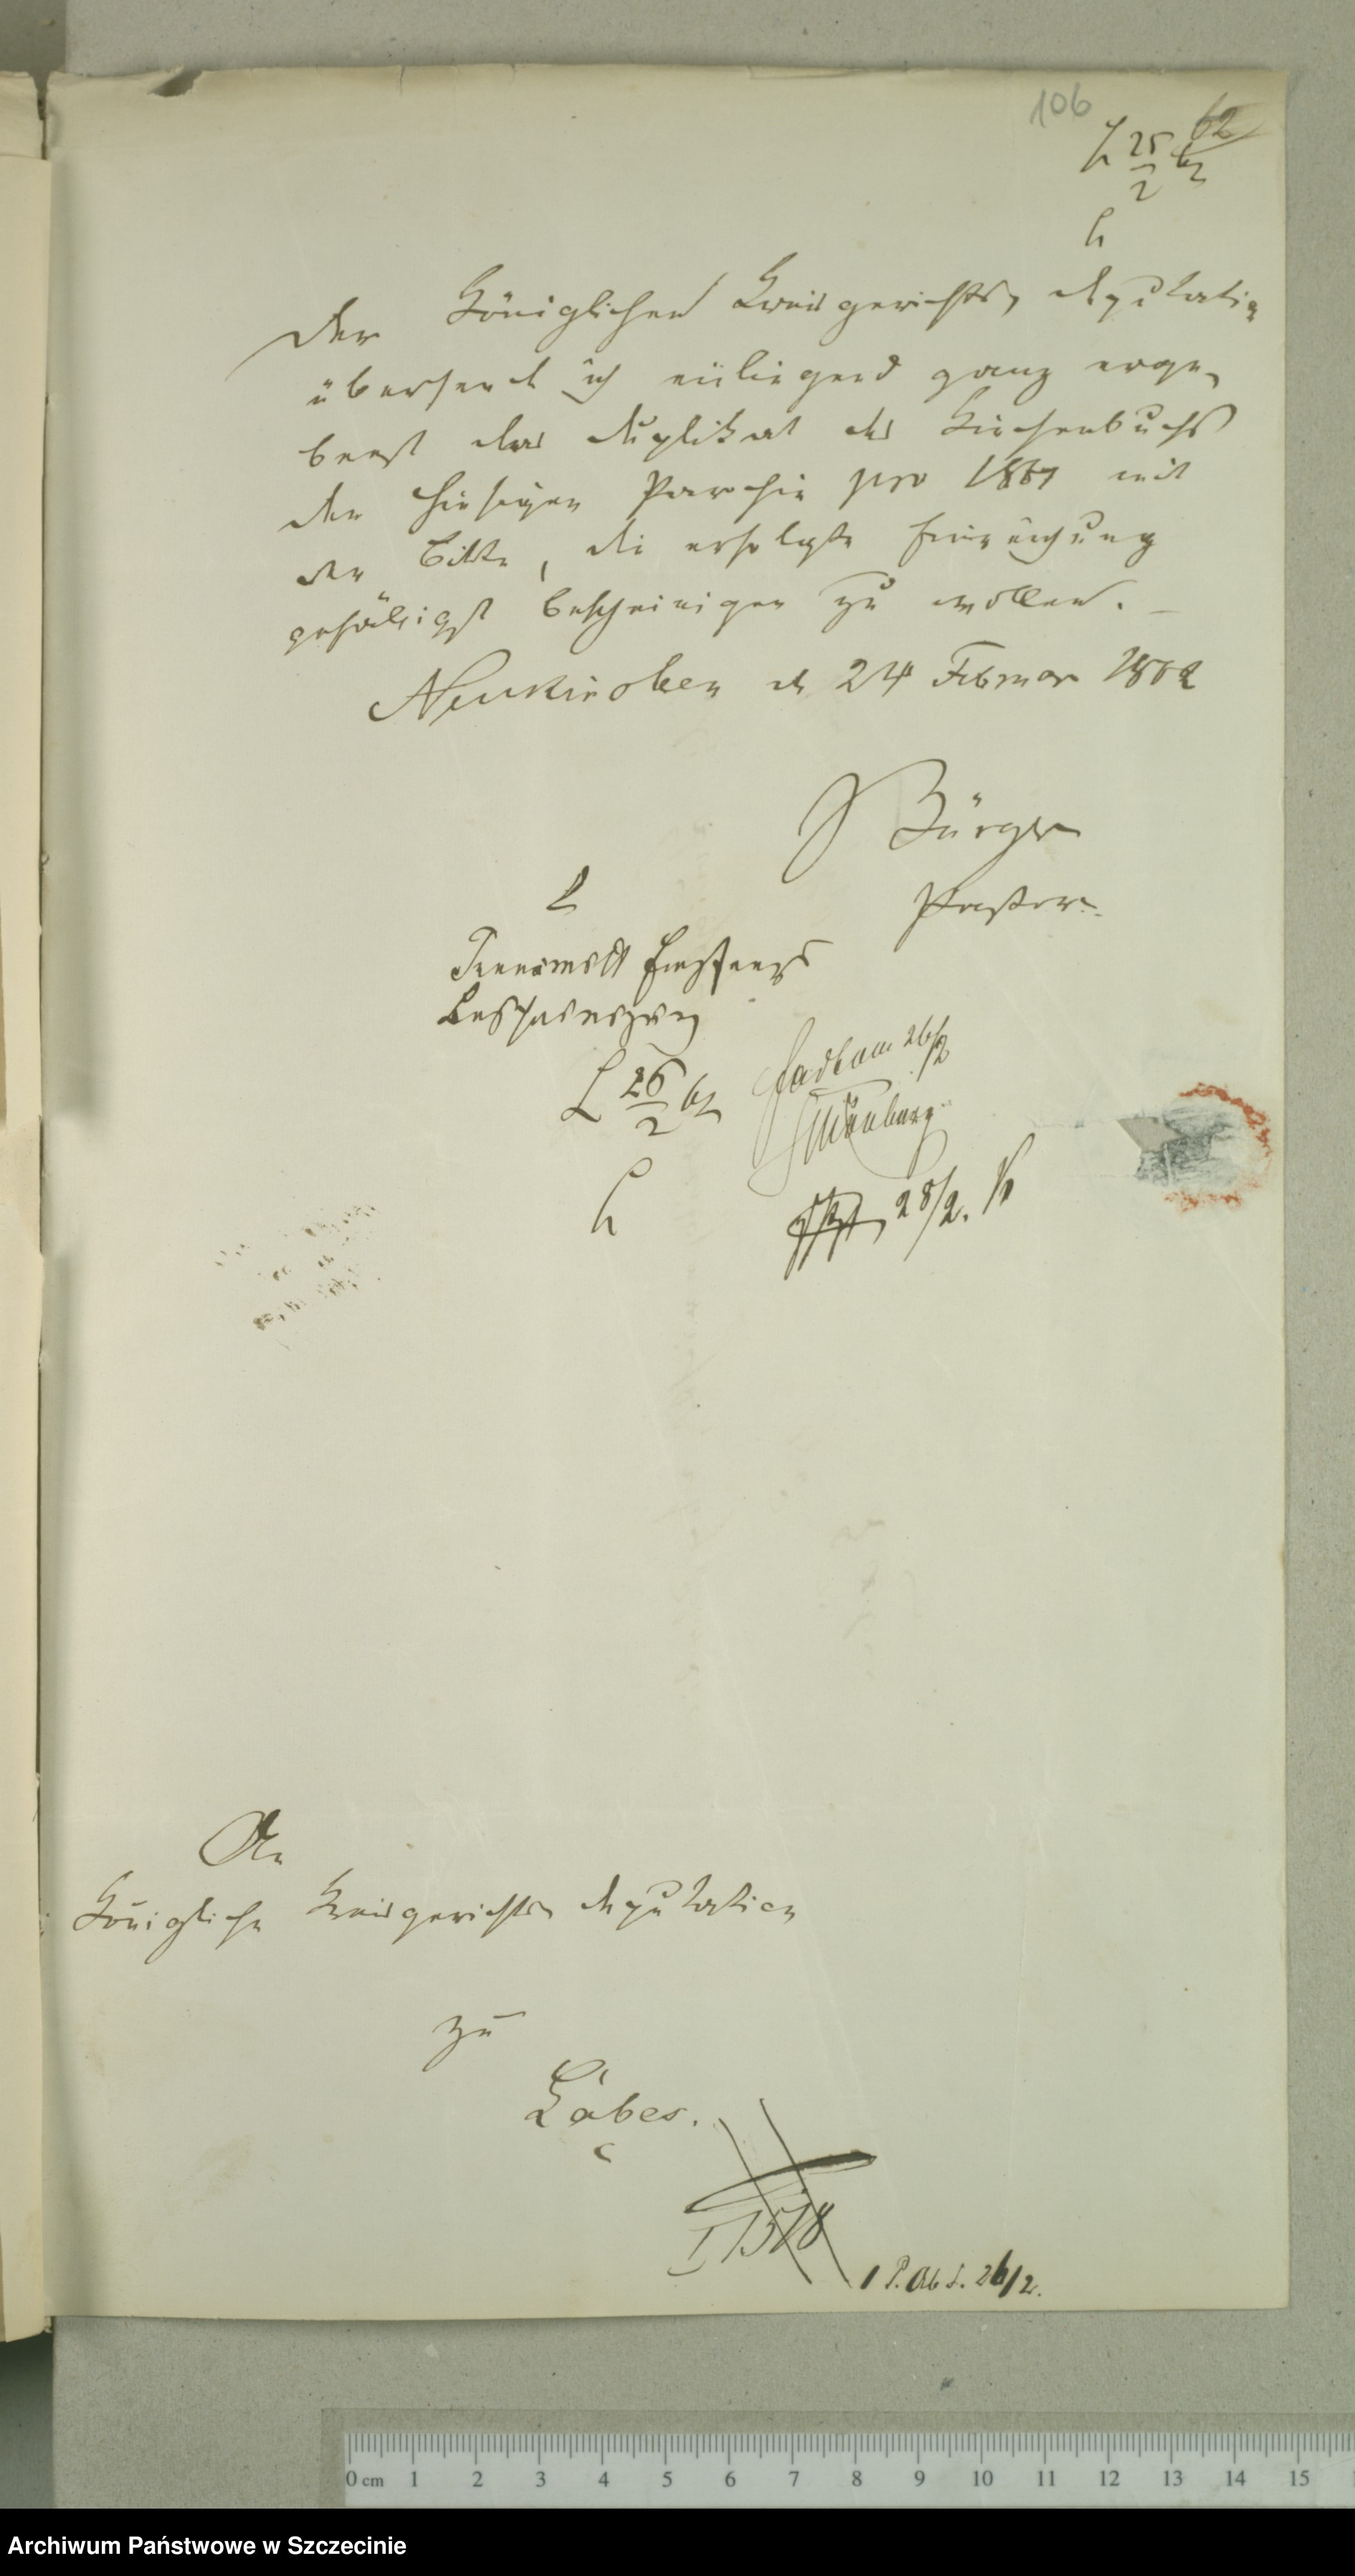 106
62
25
2 62
Der Königlichen Kreisgerichts, Deputation
übersende ich einliegend ganz erge,
benst das Duplikat des Kirchenbuchs
der hiesigen Parchie pro 1861 mit
der Bitte, die erfolgte Einreichung
gefälligst bescheinigen zu wollen.
Neukirchen d 24 Februar 1862
Bürger
Pastor.
Empfangs
Bescheinigung
L 26 62
2
26/2
28/2.
An
Königliche Kreisgerichts Deputation
zu
Labes.
I 1518
1 P. Ab S. 26/2.
0 cm 1 2 3 4 5 6 7 8 9 10 11 12 13 14 15
Archiwum Państwowe w Szczecinie